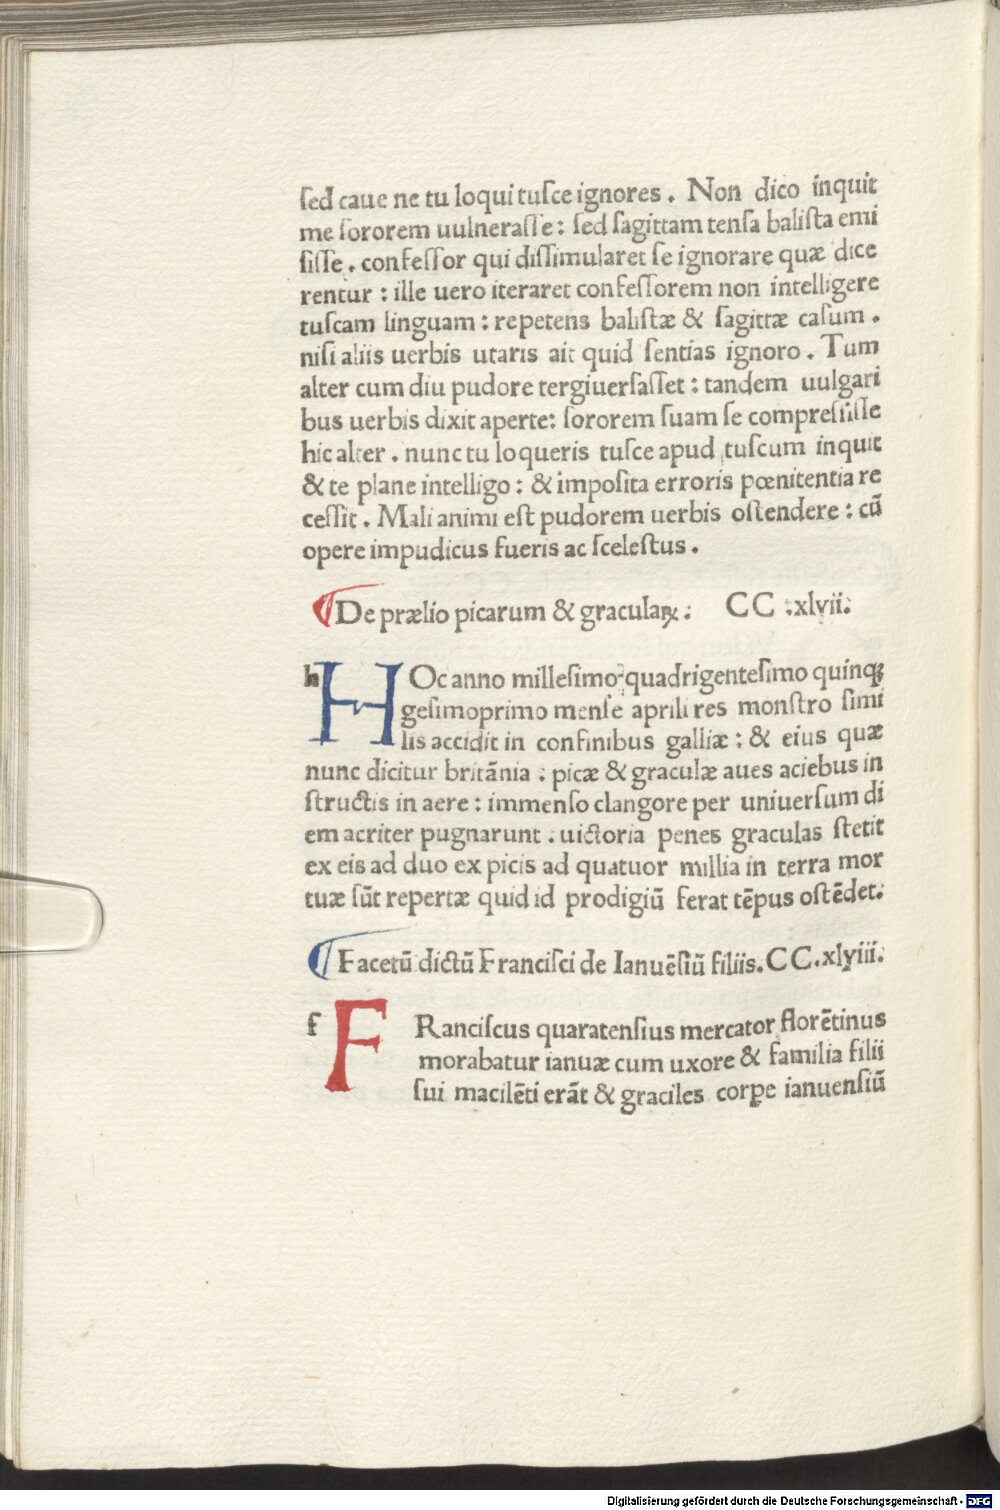 ſed caue ne tu loqui tuſce ignores . Non dico inquit
me ſororem uulneraſſe : ſed ſagittam tenſa baliſta emi
ſiſſe . confeſſor qui diſſimularet ſe ignorare quæ dice
rentur : ille uero iteraret confeſſorem non intelligere
tuſcam linguam : repetens baliſtæ & ſagittæ caſum .
niſi aliis uerbis utaris ait quid ſentias ignoro . Tum
alter cum diu pudore tergiuerſaſſet : tandem uulgari
bus uerbis dixit aperte: ſororem ſuam ſe compreſſiſſe
hic alter . nunc tu loqueris tuſce apud tuſcum inquit
& te plane intelligo : & impoſita erroris pœnitentia re
ceſſit . Mali animi eſt pudorem uerbis oſtendere : cū
opere impudicus fueris ac ſceleſtus .
¶ De prælio picarum & graculaꝝ : CC :xlvii:
h H Oc anno milleſimo quadrigenteſimo quinqꝫ
geſimoprimo menſe aprili res monſtro ſimi
lis accidit in confinibus galliæ : & eius quæ
nunc dicitur britānia : picæ & graculæ aues aciebus in
ſtructis in aere : immenſo clangore per uniuerſum di
em acriter pugnarunt . uictoria penes graculas ſtetit
ex eis ad duo ex picis ad quatuor millia in terra mor
tuæ ſūt repertæ quid id prodigiū ferat tēpus oſtēdet:
¶ Facetū dictū Franciſci de Ianuēſiū filiis. CC.xlyiii:
f F Ranciſcus quaratenſius mercator florētinus
morabatur ianuæ cum uxore & familia filii
ſui macilēti erāt & graciles corꝑe ianuenſiū
Digitalisierung gefördert durch die Deutsche Forschungsgemeinschaft - DFG